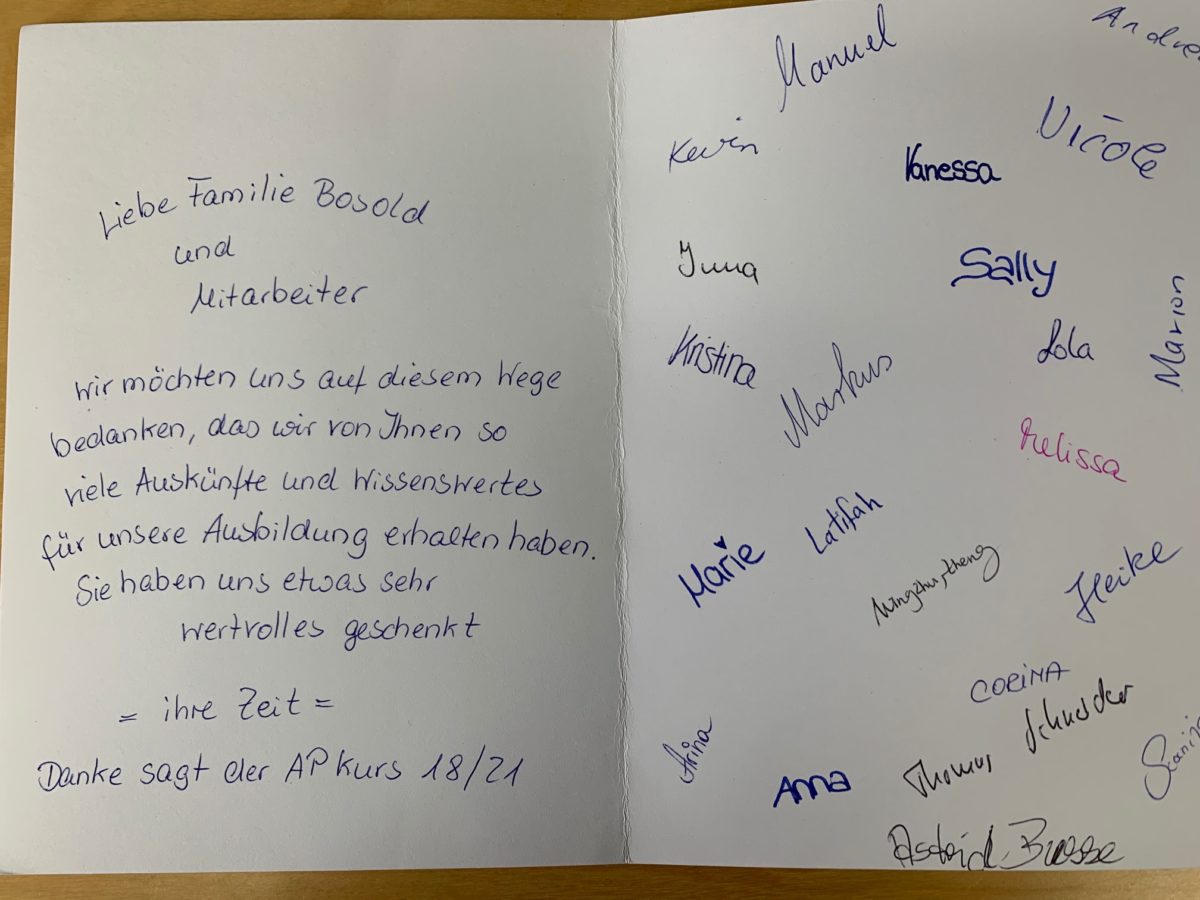 Liebe Familie Bosold
und
Mitarbeiter
wir möchten uns auf diesem Wege
bedanken, das wir von Ihnen so
viele Auskünfte und Wissenswertes
für unsere Ausbildung erhalten haben.
Sie haben uns etwas sehr
wertvolles geschenkt
= ihre Zeit =
Danke sagt der AP Kurs 18/21
Manuel
Kevin
Vanessa
Nicole
Sally
Kristina
Markus
Lola
Marion
Melissa
Marie
Latifah
Heike
CORINA
Arina
Anna
Thomas Schneider
Astrid Busse